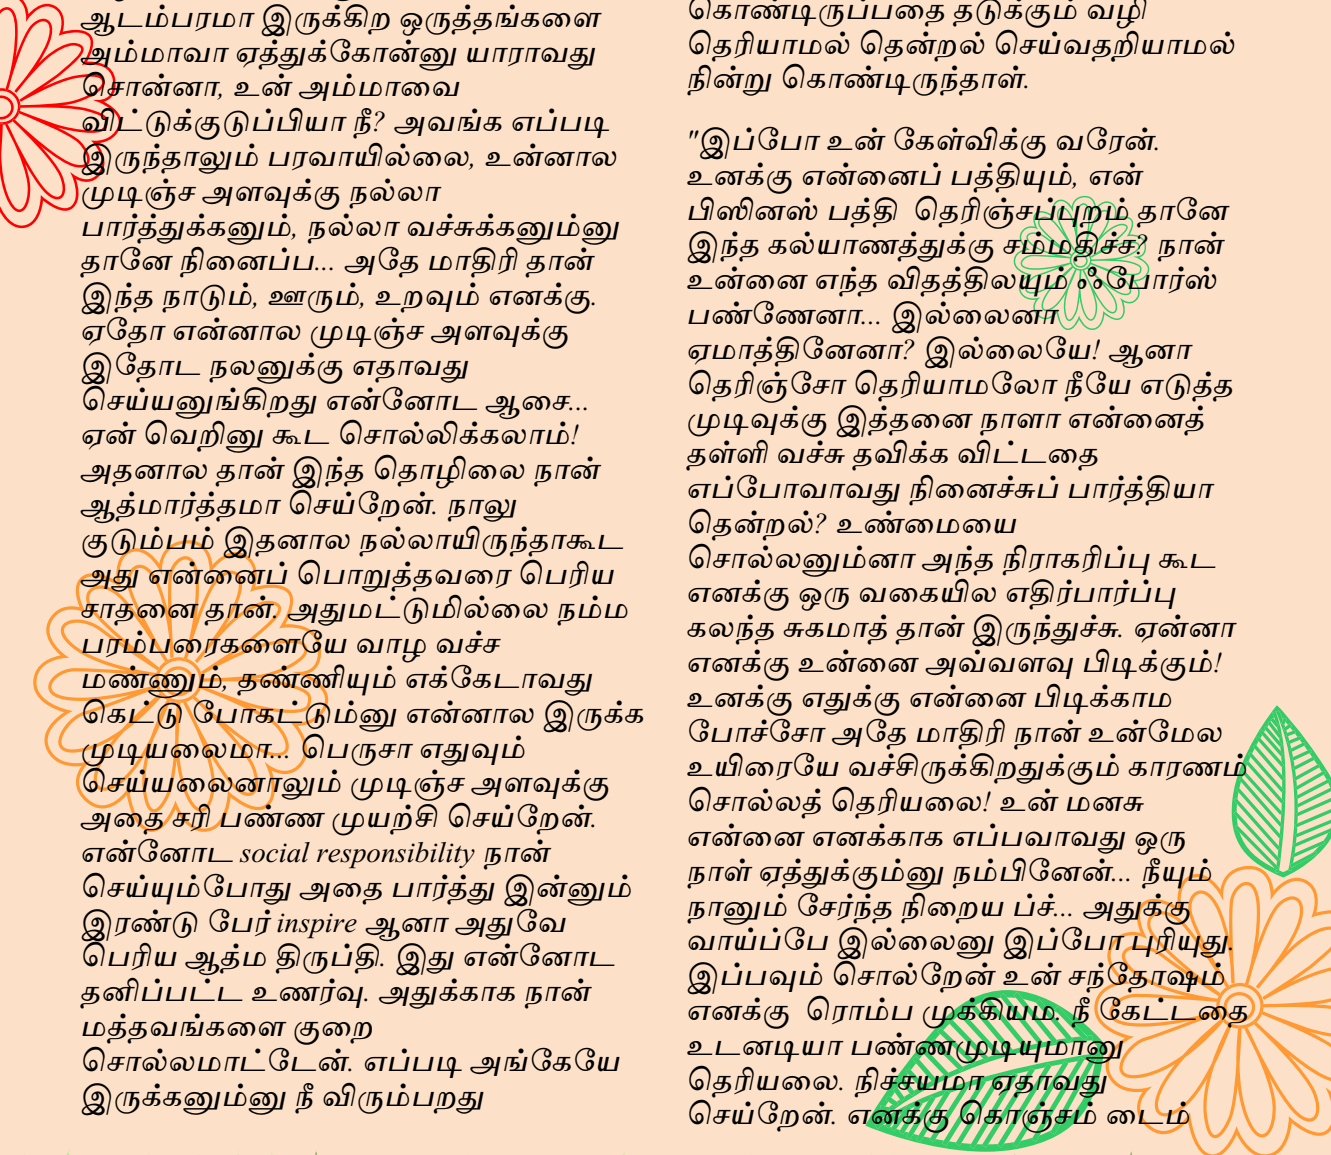 ஆடம்பரமா இருக்கிற ஒருத்தங்களை
அம்மாவா ஏத்துக்கோன்னு யாராவது
சொன்னா, உன் அம்மாவை
விட்டுக்குடுப்பியா நீ? அவங்க எப்படி
இருந்தாலும் பரவாயில்லை, உன்னால
முடிஞ்ச அளவுக்கு நல்லா
பார்த்துக்கனும், நல்லா வச்சுக்கனும்னு
தானே நினைப்ப... அதே மாதிரி தான்
இந்த நாடும், ஊரும், உறவும் எனக்கு.
ஏதோ என்னால முடிஞ்ச அளவுக்கு
இதோட நலனுக்கு எதாவது
செய்யனுங்கிறது என்னோட ஆசை...
ஏன் வெறினு கூட சொல்லிக்கலாம்!
அதனால தான் இந்த தொழிலை நான்
ஆத்மார்த்தமா செய்றேன். நாலு
குடும்பம் இதனால நல்லாயிருந்தாகூட
அது என்னைப் பொறுத்தவரை பெரிய
சாதனை தான். அதுமட்டுமில்லை நம்ம
பரம்பரைகளையே வாழ வச்ச
மண்ணும், தண்ணியும் எக்கேடாவது
கெட்டு போகட்டும்னு என்னால இருக்க
முடியலைமா... பெருசா எதுவும்
செய்யலைனாலும் முடிஞ்ச அளவுக்கு
அதை சரி பண்ண முயற்சி செய்றேன்.
என்னோட social responsibility நான்
செய்யும்போது அதை பார்த்து இன்னும்
இரண்டு பேர் inspire ஆனா அதுவே
பெரிய ஆத்ம திருப்தி. இது என்னோட
தனிப்பட்ட உணர்வு. அதுக்காக நான்
மத்தவங்களை குறை
சொல்லமாட்டேன். எப்படி அங்கேயே
இருக்கனும்னு நீ விரும்பறது
கொண்டிருப்பதை தடுக்கும் வழி
தெரியாமல் தென்றல் செய்வதறியாமல்
நின்று கொண்டிருந்தாள்.
"இப்போ உன் கேள்விக்கு வரேன்.
உனக்கு என்னைப் பத்தியும், என்
பிஸினஸ் பத்தி தெரிஞ்சப்புறம் தானே
இந்த கல்யாணத்துக்கு சம்மதிச்ச? நான்
உன்னை எந்த விதத்திலயும் ஃபோர்ஸ்
பண்ணேனா... இல்லைனா
ஏமாத்தினேனா? இல்லையே! ஆனா
தெரிஞ்சோ தெரியாமலோ நீயே எடுத்த
முடிவுக்கு இத்தனை நாளா என்னைத்
தள்ளி வச்சு தவிக்க விட்டதை
எப்போவாவது நினைச்சுப் பார்த்தியா
தென்றல்? உண்மையை
சொல்லனும்னா அந்த நிராகரிப்பு கூட
எனக்கு ஒரு வகையில எதிர்பார்ப்பு
கலந்த சுகமாத் தான் இருந்துச்சு. ஏன்னா
எனக்கு உன்னை அவ்வளவு பிடிக்கும்!
உனக்கு எதுக்கு என்னை பிடிக்காம
போச்சோ அதே மாதிரி நான் உன்மேல
உயிரையே வச்சிருக்கிறதுக்கும் காரணம்
சொல்லத் தெரியலை! உன் மனசு
என்னை எனக்காக எப்பவாவது ஒரு
நாள் ஏத்துக்கும்னு நம்பினேன்... நீயும்
நானும் சேர்ந்த நிறைய ப்ச்... அதுக்கு
வாய்ப்பே இல்லைனு இப்போ புரியுது.
இப்பவும் சொல்றேன் உன் சந்தோஷம்
எனக்கு ரொம்ப முக்கியம. நீ கேட்டதை
உடனடியா பண்ணமுடியுமானு
தெரியலை. நிச்சயமா ஏதாவது
செய்றேன். எனக்கு கொஞ்சம் டைம்